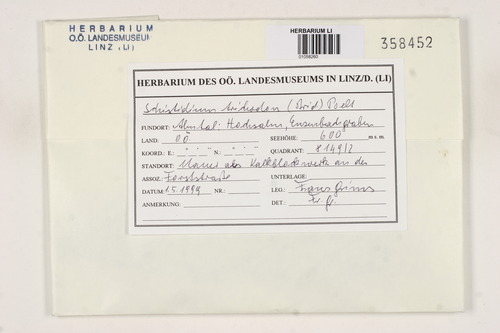 HERBARIUM
O.Ö. LANDESMUSEUM
LINZ (LI)
HERBARIUM LI
01058260
358452
HERBARIUM DES OÖ. LANDESMUSEUMS IN LINZ/D. (LI)
Schistidium trichodon (Brid) Poelt
FUNDORT: Almtal: Hochsalm,
LAND: OÖ SEEHÖHE: 600 m s. m.
KOORD.: E: ° ' " N: ° ' " QUADRANT: 8149/2
STANDORT: Mauer aus Kalkblockwerk an der
ASSOZ: Forststraße UNTERLAGE:
DATUM: 1.5.1999 NR.: LEG.: Franz Grims
ANMERKUNG. DET.: Fr. Gr.